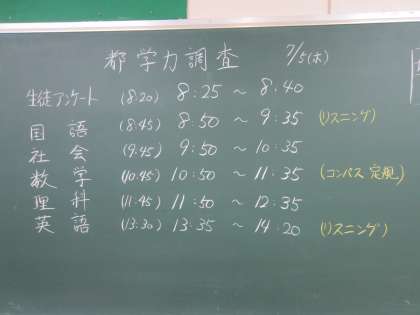 都学力調査 7/5(木)
生徒アンケート (8:20) 8:25 ～ 8:40
国語 (8:45) 8:50 ～ 9:35 (リスニング)
社会 (9:45) 9:50 ～ 10:35
数学 (10:45) 10:50 ～ 11:35 (コンパス 定規)
理科 (11:45) 11:50 ～ 12:35
英語 (13:30) 13:35 ～ 14:20 (リスニング)